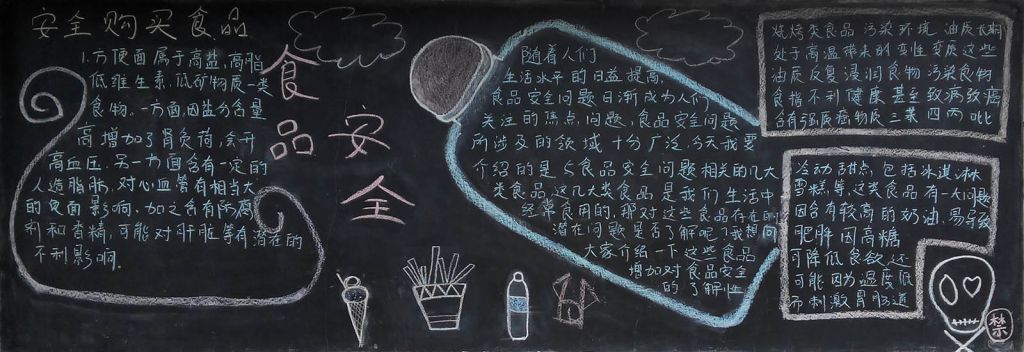 安全购买食品
1.方便面属于高盐,高脂
低维生素,低矿物质一类
食物。一方面因盐分含量
高增加了肾负荷,会升
高血压,另一方面含有一定的
人造脂肪,对心血管有相当大
的负面影响。加之含有防腐
利和香精,可能对肝脏等有潜在的
不利影响。
食品
安全
随着人们
生活水平的日益提高,
食品安全问题日渐成为人们
关注的焦点,问题,食品安全问题
所涉及的领域十分广泛,今天我要
介绍的是与食品安全问题相关的几大
类食品,这几大类食品是我们生活中
经常食用的,那对这些食品存在的
潜在问题是否了解呢?我想问
大家介绍一下这些食品
增加对食品安全
的了解性
烧烤类食品污染环境,油质食物
处于高温带来的变性变质这些
油质反复浸润食物污染食物
食指不利健康甚至致病致癌
含有强质癌物质三苯四丙吡
冷动甜点,包括冰淇淋
雪糕等,这类食品有一大问题
因含有较高的奶油,易导致
肥胖因高糖
可降低食欲还
可能因为温度低
而刺激胃肠道
禁